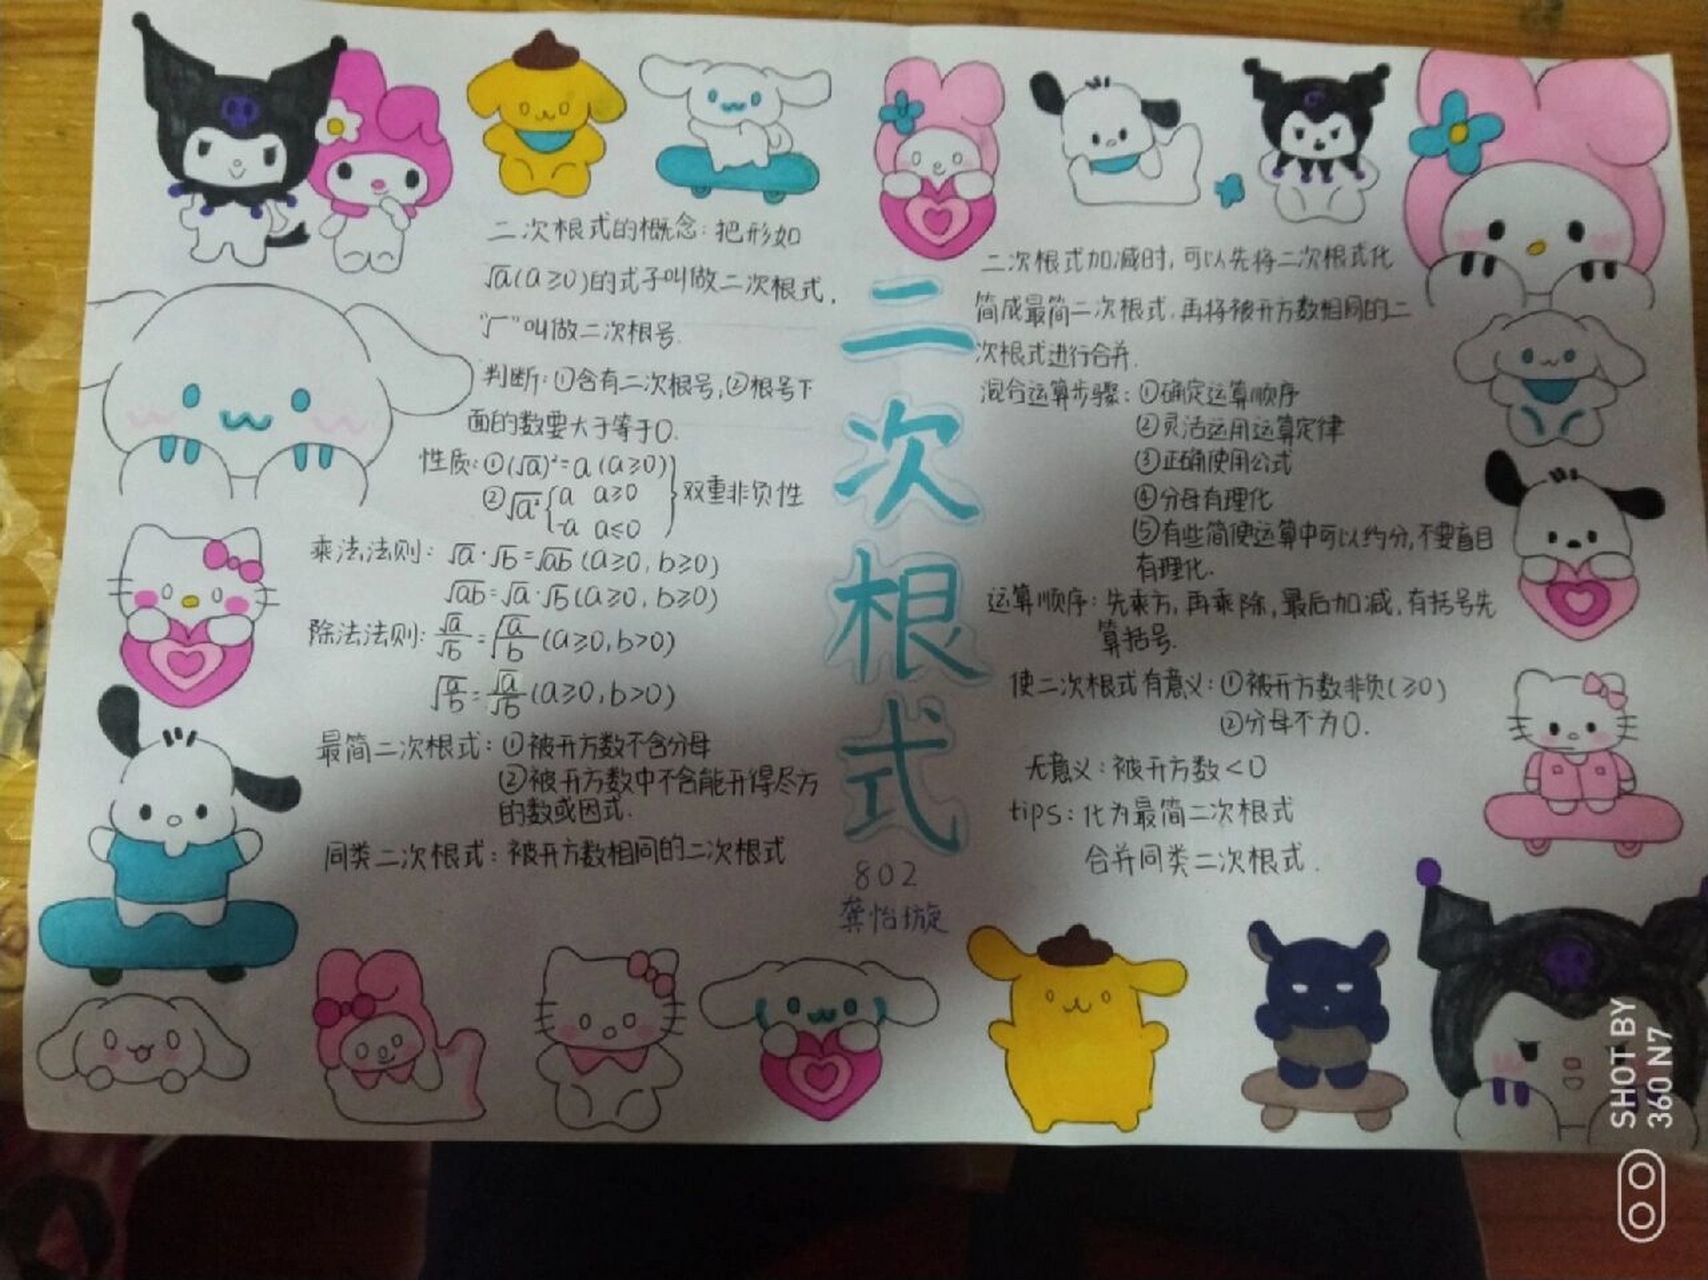 二次根式的概念：把形如
√a(a≥0)的式子叫做二次根式，
“√”叫做二次根号.
判断：①含有二次根号，②根号下
面的数要大于等于0.
性质：①(√a)²=a(a≥0)
②√a²{a a≥0
-a a≤0
}双重非负性
乘法法则：√a·√b=√ab(a≥0,b≥0)
√ab=√a·√b(a≥0,b≥0)
除法法则：√a/√b=√(a/b)(a≥0,b>0)
√(a/b)=√a/√b(a≥0,b>0)
最简二次根式：①被开方数不含分母
②被开方数中不含能开得尽方
的数或因式.
同类二次根式：被开方数相同的二次根式
二次根式
802
龚怡璇
二次根式加减时，可以先将二次根式化
简成最简二次根式，再将被开方数相同的二
次根式进行合并.
混合运算步骤：①确定运算顺序
②灵活运用运算定律
③正确使用公式
④分母有理化
⑤有些简便运算中可以约分，不要盲目
有理化.
运算顺序：先乘方，再乘除，最后加减，有括号先
算括号.
使二次根式有意义：①被开方数非负(≥0)
②分母不为0.
无意义：被开方数<0
tips：化为最简二次根式
合并同类二次根式.
SHOT BY
360 N7